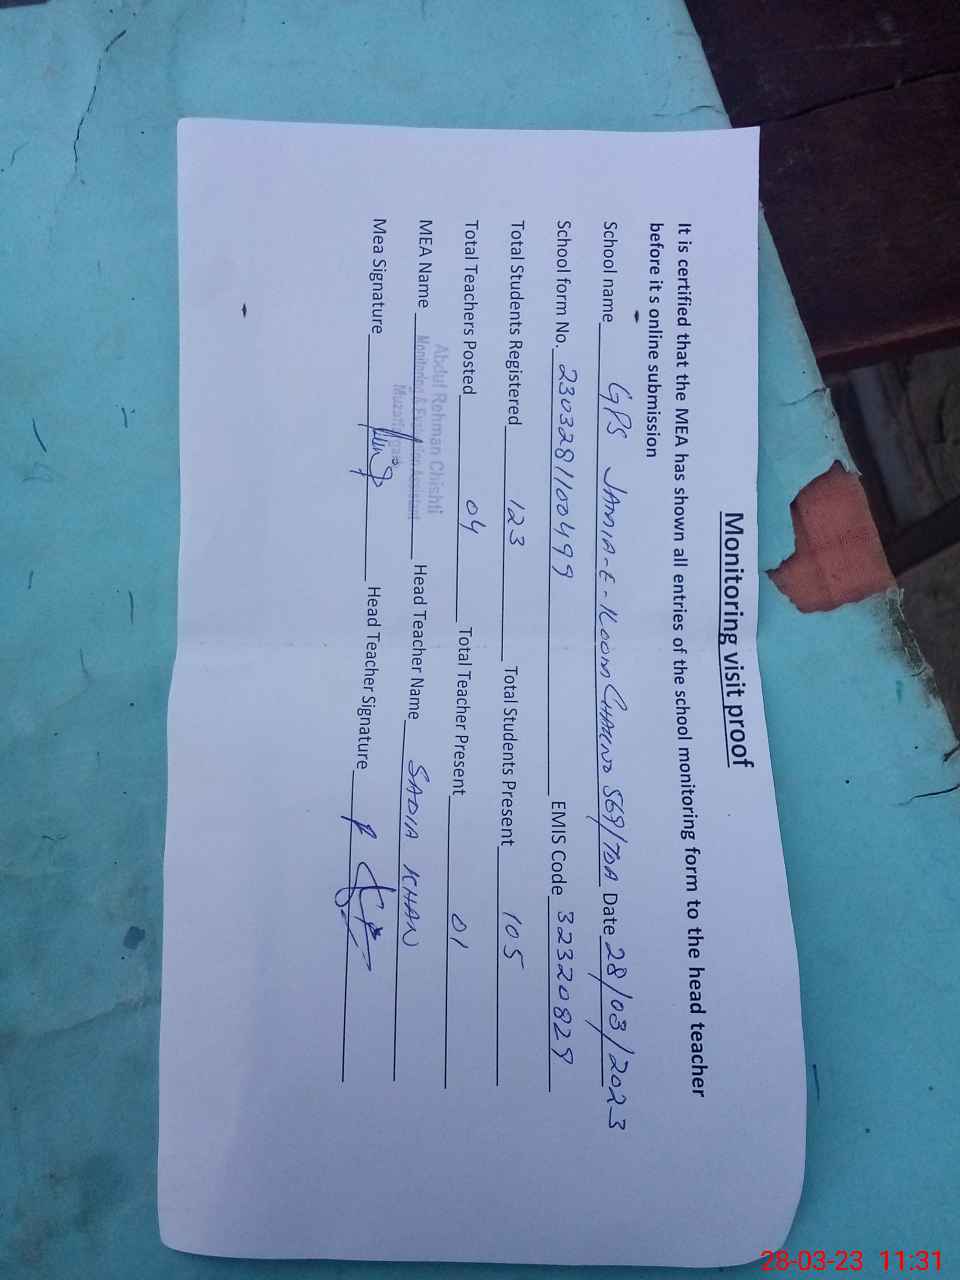 Monitoring visit proof
It is certified that the MEA has shown all entries of the school monitoring form to the head teacher
before it s online submission
School name GPS JAMIA-E-ILOOM CHAK NO 569/TDA Date 28/03/2023
School form No. 2303281100499 EMIS Code 32320829
Total Students Registered 123 Total Students Present 105
Total Teachers Posted 04 Total Teacher Present 01
Abdul Rehman Chishti
MEA Name Monitoring & Evaluation Assistant Head Teacher Name SADIA KHAN
Muzaffargarh
Mea Signature Head Teacher Signature
28-03-23 11:31